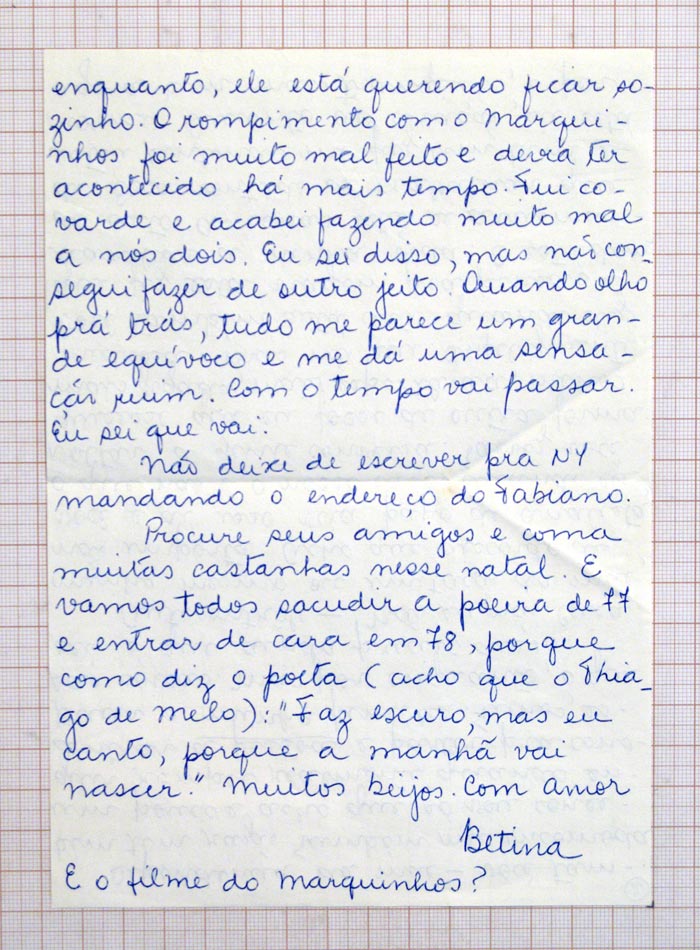 enquanto, ele está querendo ficar so-
zinho. O rompimento com o Marqui-
nhos foi muito mal feito e devia ter
acontecido há mais tempo. Fui co-
varde e acabei fazendo muito mal
a nós dois. Eu sei disso, mas não con-
segui fazer de outro jeito. Quando olho
prá trás, tudo me parece um gran-
de equívoco e me dá uma sensa-
ção ruim. Com o tempo vai passar.
Eu sei que vai.
Não deixe de escrever pra NY
mandando o endereço do Fabiano.
Procure seus amigos e coma
muitas castanhas nesse natal. E
vamos todos sacudir a poeira de 77
e entrar de cara em 78, porque
como diz o poeta (acho que o Thia-
go de Melo): "Faz escuro, mas eu
canto, porque a manhã vai
nascer." Muitos beijos. Com amor
Betina
E o filme do Marquinhos?